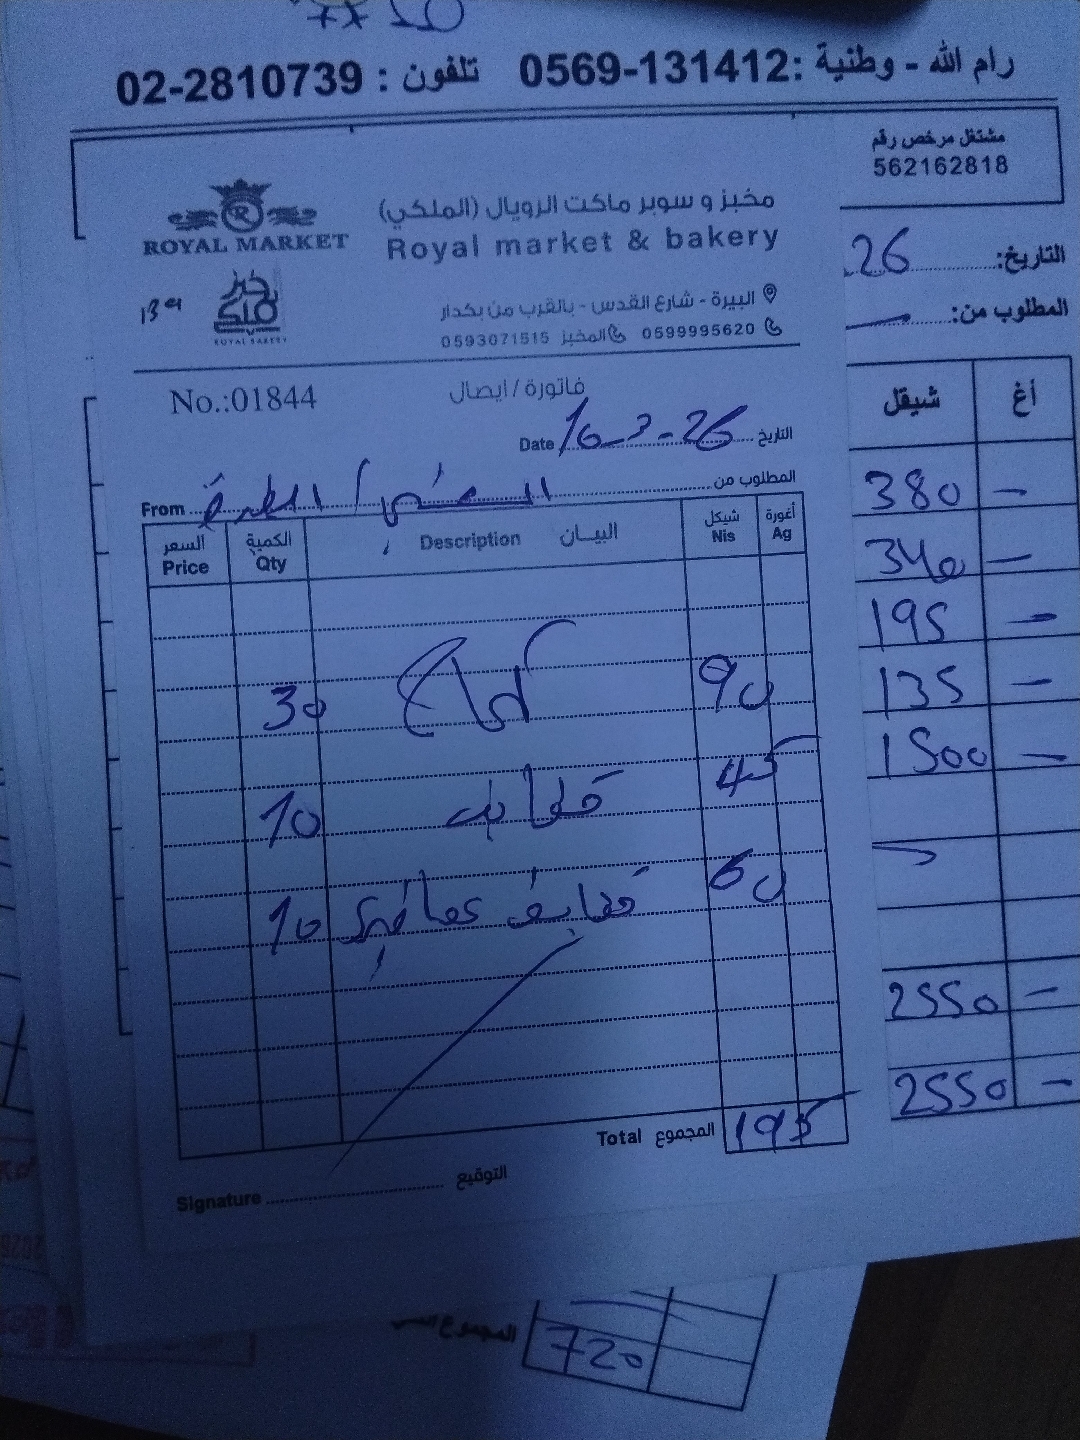 رام الله - وطنية :0569-131412 تلفون : 02-2810739
مشتغل مرخص رقم
562162818
ROYAL MARKET
مخبز و سوبر ماكت الرويال (الملكي)
Royal market & bakery
خبز ملكي
ROYAL BAKERY
البيرة - شارع القدس - بالقرب من بكدار
0599995620 المخبز 0593071515
التاريخ: 26
المطلوب من:
No.:01844
فاتورة / ايصال
Date 16-3-26 التاريخ
From المطلوب من
السعر الكمية البيــان شيكل أغورة
Price Qty Description Nis Ag
30 90
10 قطايف 45
10 قطايف عصافيري 60
Total المجموع 195
Signature التوقيع
شيقل أغ
380 —
340 —
195 —
135 —
1500 —
2550 —
2550 —
المجموع
720